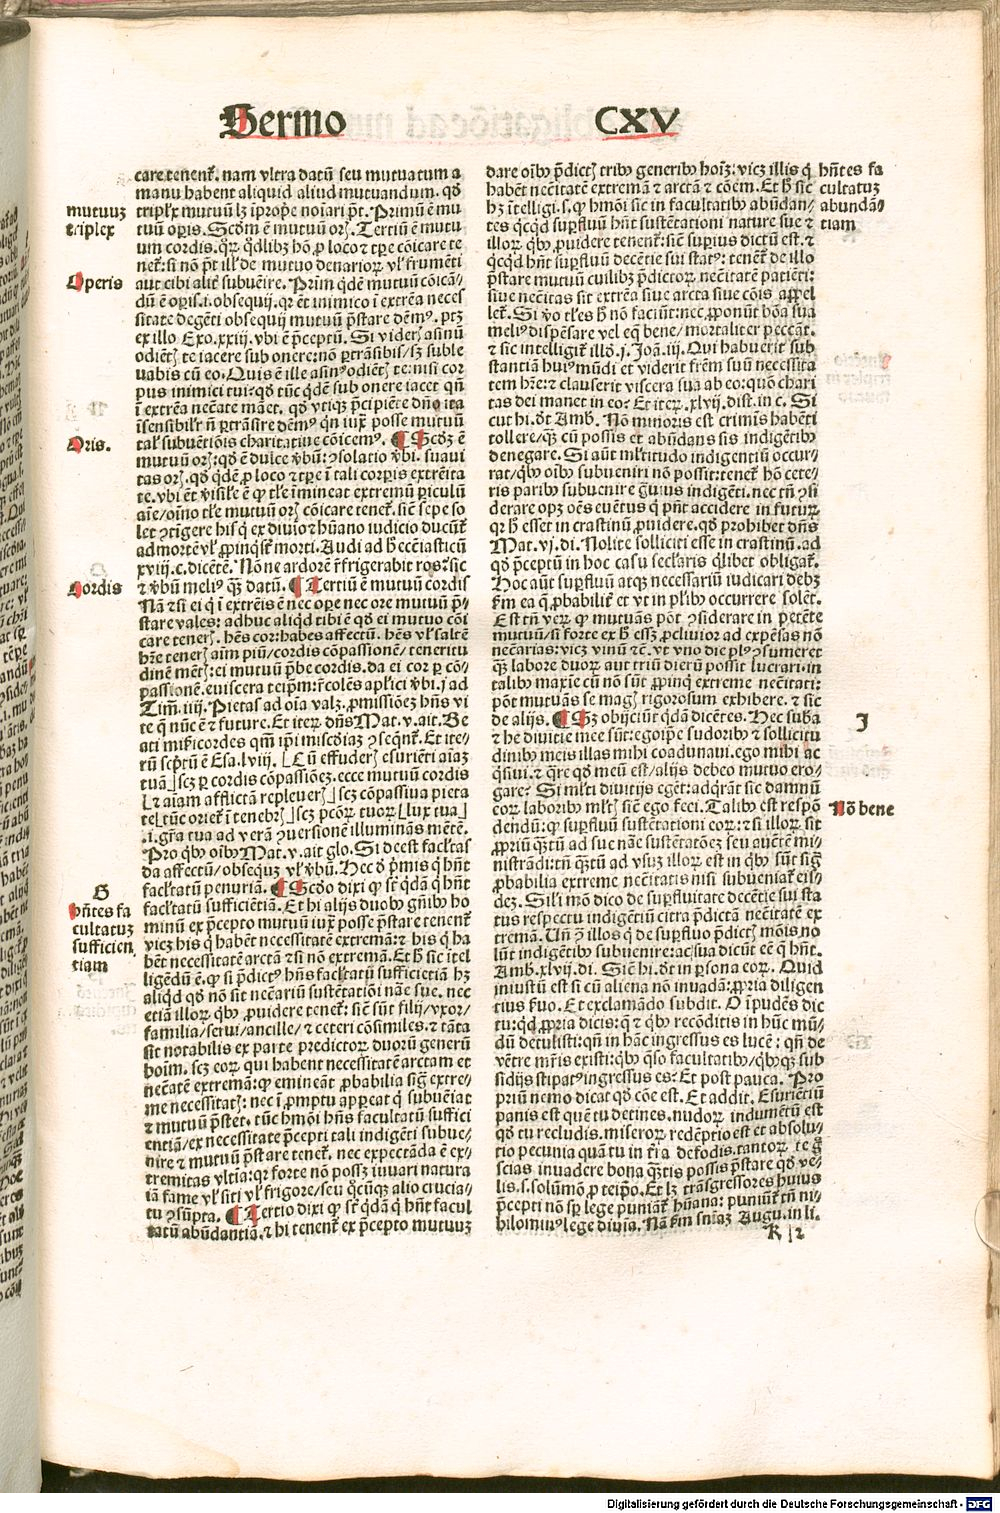 Sermo CXV
care tenent̄. nam vltra datū seu mutuatum a
manu habent aliquid aliud mutuandum. qđ
mutuuꝫ
triplex
triplex mutuū lꝫ īprope noīari pt̄. Primū ē mu
tuū oꝑis. Scđm ē mutuū orꝭ. Tertiū ē mutu
um cordis. qꝛ. q̄dlibꝫ hō ꝓ loco ⁊ tꝑe cōicare te
net̄: si nō pt̄ ill' de mutuo denarioꝝ vl' frumēti
Operis
aut cibi alit̄ subuēire. Prim q̇dē mutuū cōica/
dū ē oꝑis .i. obsequij. qꝛ et inimico i extrēa neces
sitate degēti obsequij mutuū p̄stare dēmꝰ. ptꝫ
ex illo Exo. xxiij. vbi ē p̄ceptū. Si videris asinū
odiētꝭ te iacere sub onere: nō ꝑtrāsibis/ sꝫ suble
uabis cū eo. Quis ē ille asinꝰ odiētꝭ te: nisi cor
pus inimici tui: qđ tūc q̇dē sub onere iacet qn̄
ī extrēa nēcate manet. qđ vtiqꝫ p̄cipiēte dn̄o ita
īsensibilr̄ ñ ꝑtransire dēmꝰ qn̄ iuxͣ posse mutuū
Oris.
tal' subuētiōis charitatiue cōicemꝰ. ¶ Scđꝫ ē
mutuū orꝭ: qđ ē dulce v̄bū: ꝯsolatio v̄bi. suaui
tas orꝭ. qđ q̇dē ꝓ loco ⁊ tꝑe ī tali corꝑis extrēita
te. vbi et v̇isile ē ꝙ tl'e īmineat extremū ꝑiculū
aīe/ oīno tl'e mutuū orꝭ cōicare tenet̄. sic̄ sepe so
let ꝯtigere his q̇ ex diuio ⁊ hūano iudicio ducūt̄
ad mortē vl' ꝓpinq̄st̄ morti. Audi ad h̄ ecc̄iasticū
xviij. c. dicētē. Nōne ardorē r̄frigerabit ros: sic
Cordis
⁊ v̄bum meliꝰ qꝫ datū. ¶ Tertiū ē mutuū cordis
Nā ⁊ si ei q̇ ī extrēis ē nec ope nec ore mutuū p̄
stare vales: adhuc aliqd tibi ē qđ ei mutuo cōi
care tenerꝭ. hēs cor: habes affectū. hēs vl' saltē
hr̄e tenerꝭ aīm piū/ cordis cōpassionē/ teneritu
dinē mētꝭ: ei mutuū p̄be cordis. da ei cor ꝑ cō
passionē. euiscera teip̄m: r̄colēs apl'ici v̄bi. j ad
Tim̄. iiij. Pietas ad oīa valꝫ. ꝓmissiōeꝫ hn̄s vi
te q̄ nūc ē ⁊ future. Et iteꝝ dn̄s Mat. v. ait. Be
ati mīsericordes qm̄ ip̄i misc̄diaꝫ ꝯseq̄nt̄. Et ite
rū sc̄ptū ē Esa. lviij. [Cū effuderꝭ esuriēti aīaꝫ
tuā] scꝫ ꝑ cordis cōpassiōeꝫ. ecce mutuū cordis
[⁊ aīam afflictā repleuerꝭ] scꝫ cōpassiua pieta
te[tūc orieƭ ī tenebrꝭ] scꝫ pcōꝝ tuoꝝ [lux tua]
.i. gr̄a tua ad verā ꝯuersionē illuminās mētē.
Pro qbꝰ oībꝰ Mat. v. ait glo. Si deest facl'tas
da affectū/ obsequꝫ vl' v̄bū. Hec đ p̄mis q̇ hn̄t
G
facl'tatū penuriā. ¶ Scđo dixi ꝙ sr̄ q̇dā q̇ hn̄t
hn̄tes fa
cultatuꝫ
sufficien
tiam
facl'tatū sufficiētiā. Et hi alijs duobꝰ gn̄ibꝰ ho
minū ex p̄cepto mutuū iuxͣ posse p̄stare tenent̄
vicꝫ his q̇ habēt necessitatē extremā: ⁊ his q̇ ha
bēt necessitatē arctā ⁊ si nō extremā. Et h̄ sic ītel
ligēdū ē. ꝙ si p̄dictꝰ hn̄s facl'tatū sufficiētiā hꝫ
aliqd qđ nō sit nēcāriū sustētatiōi nāe sue. nec
etiā illoꝝ qbꝰ ꝓuidere tenet̄: sic̄ sūt filij/ vxor/
familia/ serui/ ancille/ ⁊ ceteri cōsimiles. ⁊ tāta
sit notabilis ex parte predictoꝝ duorū generū
hoīm. scꝫ eoꝝ qui habent necessitatē arctam et
nēcatē extremā: ꝙ emineāt ꝓbabilia sig̃ extre/
me necessitatꝭ: nec ī promptu appeat q̇ subuēiat
⁊ mutuū p̄stet. tūc hmōi hn̄s facultatū suffici
entiā/ ex necessitate p̄cepti tali indigēti subue/
nire ⁊ mutuū p̄stare tenet̄. nec expectāda ē ex/
tremitas vltīa: qꝛ forte nō possꝫ iuuari natura
iā fame vl' siti vl' frigore/ seu q̇cūqꝫ alio crucia/
tu ꝯsūpta. ¶ Tertio dixi ꝙ sr̄ q̇dā q̇ hn̄t facul
tatū abūdantiā. ⁊ hi tenent̄ ex p̄cepto mutuuꝫ
dare oībꝰ p̄dictꝭ tribꝰ generibꝰ hoīꝫ: vicꝫ illis q̇
hn̄tes fa
cultatuꝫ
abundā/
tiam
habēt nēcitatē extremā ⁊ arctā ⁊ cōem. Et h̄ sic
hꝫ ītelligi .s. ꝙ hmōi sic in facultatibꝰ abūdan/
tes qcqd suꝑfluū hn̄t sustētationi nature sue ⁊
illoꝝ qbꝰ ꝓuidere tenent̄: sic̄ suꝑius dictū est. ⁊
qcqd hn̄t suꝑfluū decētie sui statꝰ: tenēt̄ de illo
p̄stare mutuū cuilibꝫ p̄dictoꝝ nēcitatē patiēti:
siue nēcitas sit extrēa siue arcta siue cōis appel
let̄. Si v̄o tl'es h̄ nō faciūt: nec ꝓponūt bōa sua
meliꝰ dispēsare vel eq̄ bene/ mortaliter peccāt.
⁊ sic intelligit̄ illđ .j. Joā. iij. Qui habuerit sub
stantiā huiꝰ mūdi et viderit frēm suū necessita
tem hr̄e: ⁊ clauserit viscera sua ab eo: quō chari
tas dei manet in eo: Et iteꝝ. xlvij. dist. in c. Si
cut hi. đt Amb. Nō minoris est crimīs habēti
tollere/ qꝫ cū possis et abūdans sis indigētibꝰ
denegare. Si aūt ml'titudo indigentiū occur/
rat/ qbꝰ oībꝰ subueniri nō possit: tenet̄ hō cete/
ris paribꝰ subuenire ḡuius indigēti. nec tn̄ ꝯsi
derare opꝫ oēs euētus q̇ pn̄t accidere in futuꝝ.
qꝛ h̄ esset in crastinū ꝓuidere. qđ prohibet dn̄s
Mat. vj. di. Nolite solliciti esse in crastinū. ad
qđ p̄ceptū in hoc casu secl'aris q̇libet obligat̄.
Hoc aūt suꝑfluū atqꝫ necessariū iudicari debꝫ
ẜm ea q̄ ꝓbabilit̄ et vt in pl'ibꝰ occurrere solēt.
Est tn̄ veꝝ ꝙ mutuās pōt ꝯsiderare in petēte
mutuū/ si forte ex h̄ essꝫ ꝓcliuior ad expēsas nō
nēcārias: vicꝫ vinū ⁊c̄. vt vno die plꝰ ꝯsumeret
qꝫ labore duoꝝ aut triū dierū possit lucrari. in
talibꝰ maxīe cū nō sūt ꝓpinq̇ extreme nēcitati:
pōt mutuās se magꝭ rigorosum exhibere. ⁊ sic
J
de alijs. ¶ Sꝫ obijciūt q̇dā dicētes. Hec suba
⁊ he diuitie mee sūt: ego ip̄e sudoribꝰ ⁊ sollicitu
dinibꝰ meis illas mihi coadunaui. ego mihi ac
q̄siui. ⁊ q̄re qđ meū est/ alijs debeo mutuo ero/
gare: Si ml'ti diuitijs egēt: adqrāt sic damnū
Nō bene
eoꝝ laboribꝰ ml'tꝭ sic̄ ego feci. Talibꝰ est respō
dendū: ꝙ suꝑfluū sustētationi eoꝝ: ⁊ si illoꝝ sit
ꝓpriū qꝫtū ad sue nāe sustētatōeꝫ seu auētē mi/
nistrādi: tn̄ qꝫtū ad vsuꝫ illoꝝ est in qbꝰ sūt sig̃
ꝓbabilia extreme nēcitatis nisi subueniat̄ eis/
dēꝫ. Sil'i mō dico de suꝑfluitate decētie sui sta
tus respectu indigētiū citra p̄dictā nēcitatē ex
tremā. Un̄ ꝯ illos q̇ de suꝑfluo p̄dictꝭ mōis no
lūt indigētibꝰ subuenire: ac sua dicūt eē q̄ hn̄t.
Amb. xlvij. di. Sic̄ hi. đt in ꝑsona eoꝝ. Quid
iniustū est si cū aliena nō inuadā: ꝓpria diligen
tius ẜuo. Et exclamādo subdit. O īpudēs dic
tū: qd ꝓpria dicis: q̄ ⁊ qbꝰ recōditis in hūc mū/
dū detulisti: qn̄ in hāc ingressus es lucē: qn̄ de
vētre mr̄is existi: qbꝰ qso facultatibꝰ/ qbꝰqꝫ sub
sidijs stipatꝰ ingressus es: Et post pauca. Pro
priū nemo dicat qđ cōe est. Et addit. Esuriētiū
panis est quē tu detines. nudoꝝ indumētū est
qđ tu recludis. miseroꝝ redēptio est et absolu/
tio pecunia quā tu in t̄ra defodis. tantoꝝ te g̈
scias inuadere bona qꝫtis possis p̄stare qđ ve/
lis .s. solūmō ꝓ teip̄o. Et lꝫ trāsgressores huius
p̄cepti nō sꝑ lege puniāt̄ hūana: puniūt̄ tn̄ ni/
hilominꝰ lege diuīa. Nā ẜm sn̄iaꝫ Augu. in li.
K 2
Digitalisierung gefördert durch die Deutsche Forschungsgemeinschaft - DFG